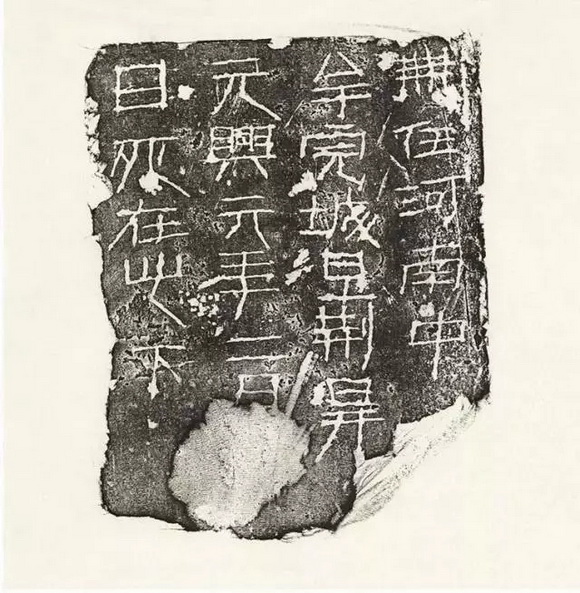 無任河南中
牟完城旦荆
元興元年二月
日死在此下